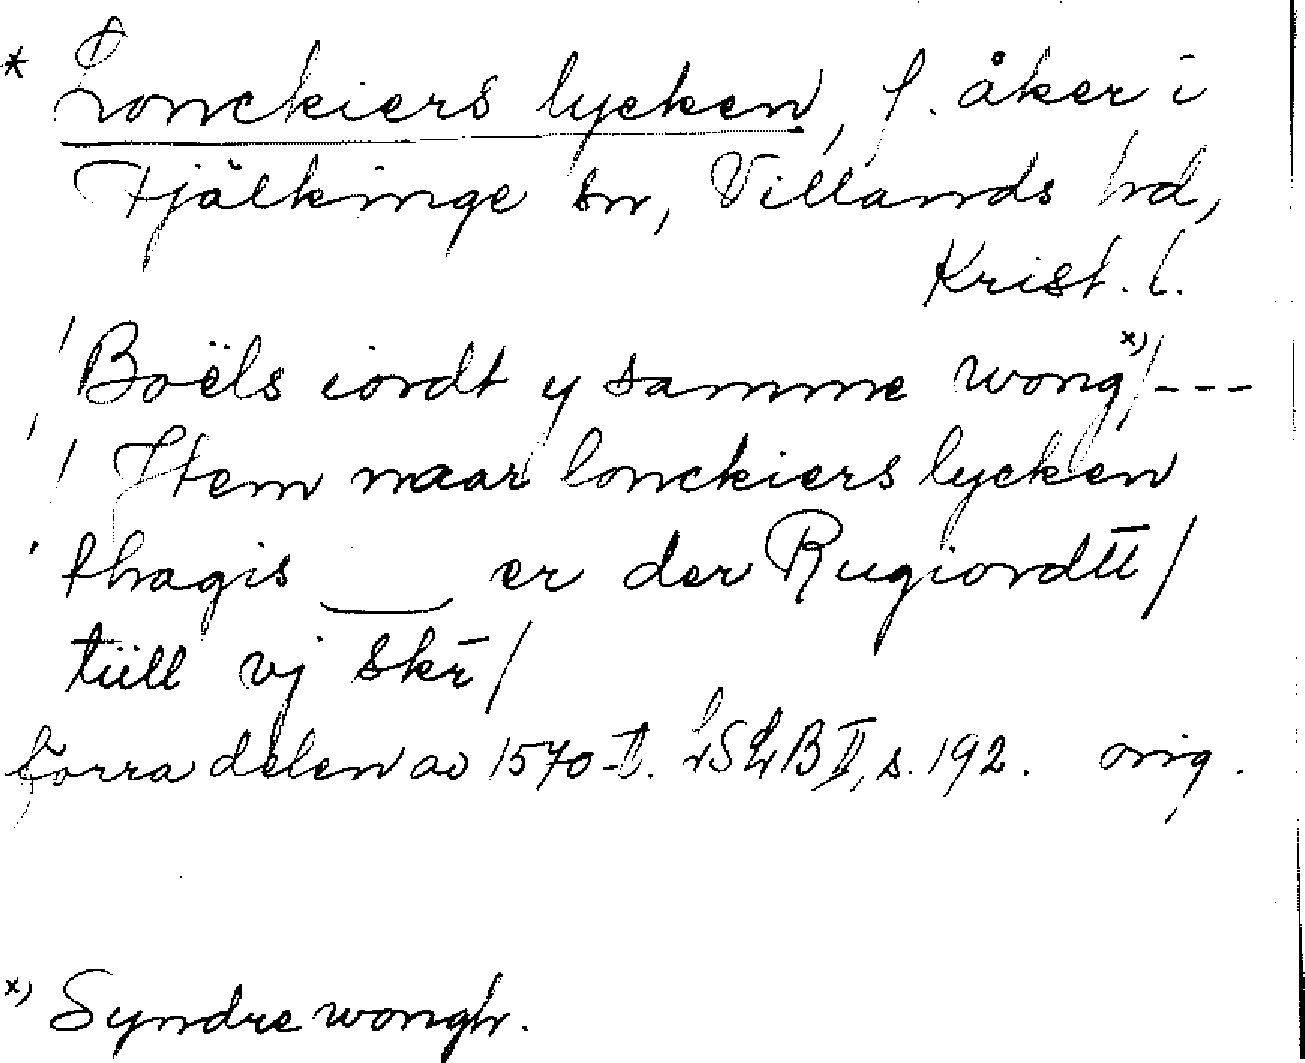 * Lonckiers lycken, f. åker i
Fjälkinge sn, Villands hd,
Krist. l.
Boëls iordt y samme wong x)/---
/ Item naar lonckiers lycken
thagis ___ er der Rugiordtt/
tiill vj skr̄/
förra delen av 1570-t. LSLB II, s. 192. orig.
x) Syndre wongh.